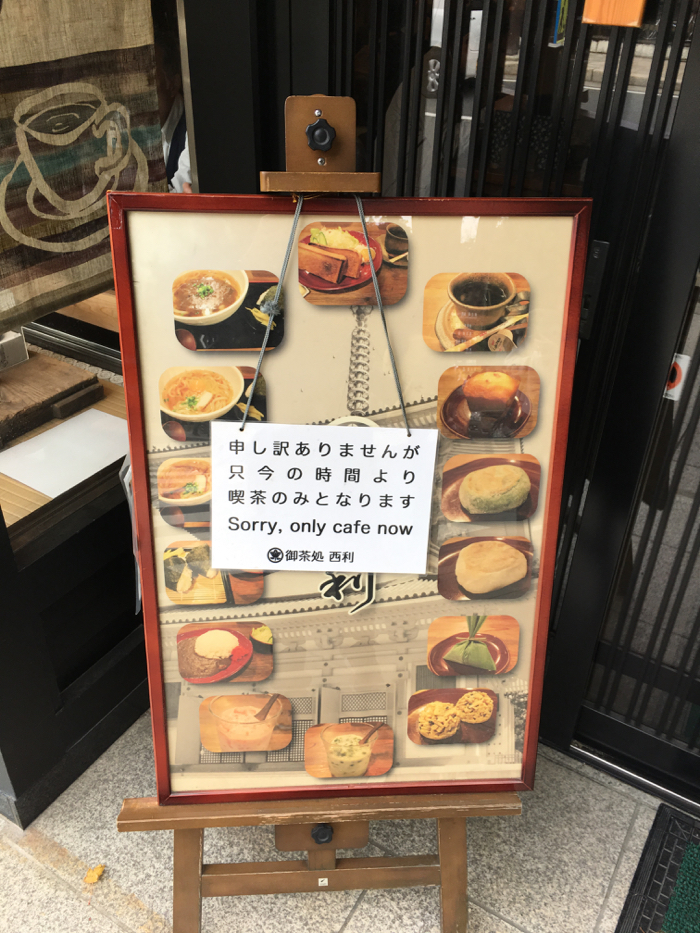 申し訳ありませんが
只今の時間より
喫茶のみとなります
Sorry, only cafe now
御茶処 西利
利